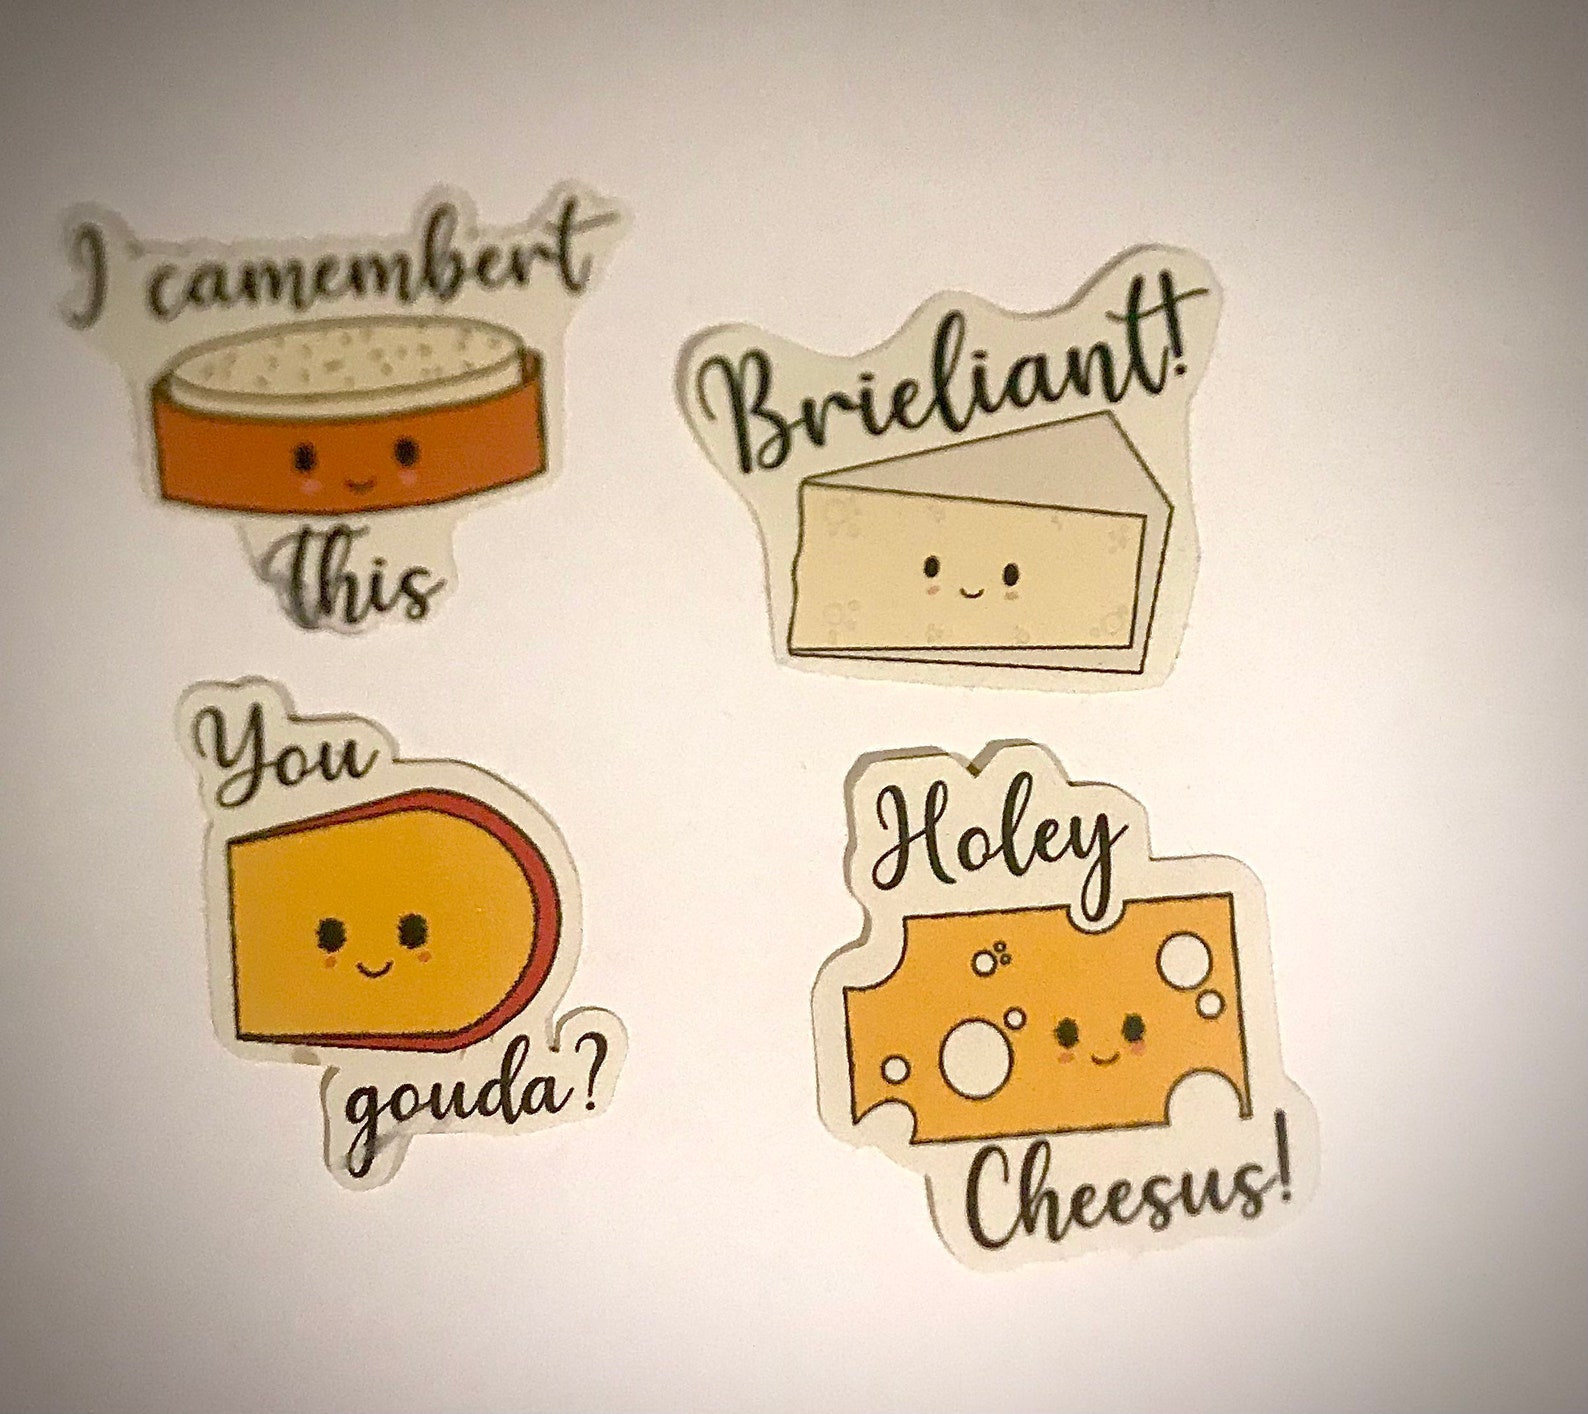 I camembert
this
Brieliant!
You
gouda?
Holey
Cheesus!